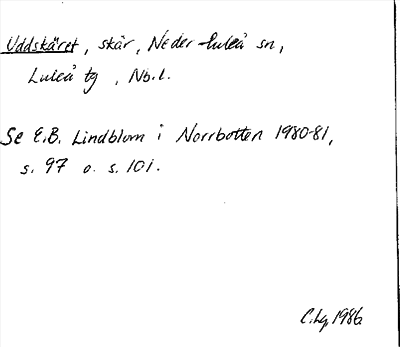 Uddskäret, skär, Neder-Luleå sn,
Luleå tg, Nb.l.
Se E.B. Lindblom i Norrbotten 1980-81,
s. 97 o. s. 101.
C.Lg 1986.